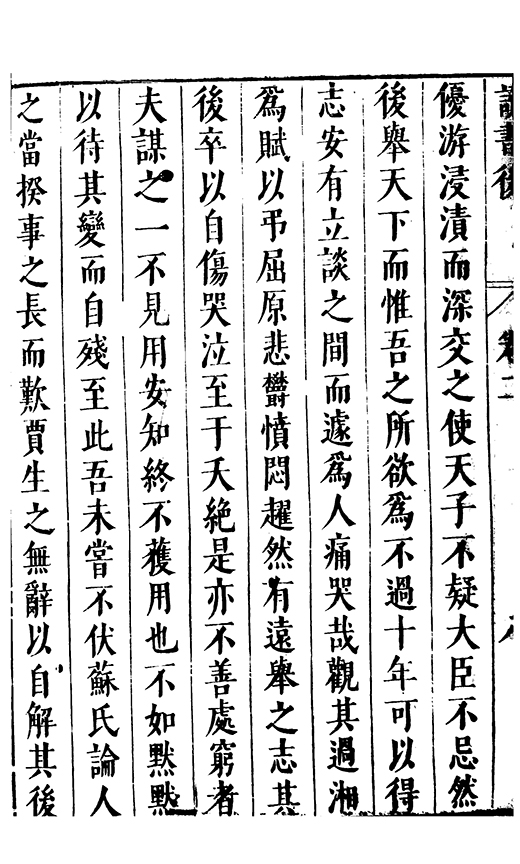 讀書後 卷二 八
優游浸漬而深交之使天子不疑大臣不忌然
後舉天下而惟吾之所欲為不過十年可以得
志安有立談之間而遽為人痛哭哉觀其過湘
為賦以弔屈原悲鬱憤悶趯然有遠舉之志其
後卒以自傷哭泣至于夭絕是亦不善處窮者
夫謀之一不見用安知終不獲用也不如默默
以待其變而自殘至此吾未嘗不伏蘇氏論人
之當揆事之長而歎賈生之無辭以自解其後